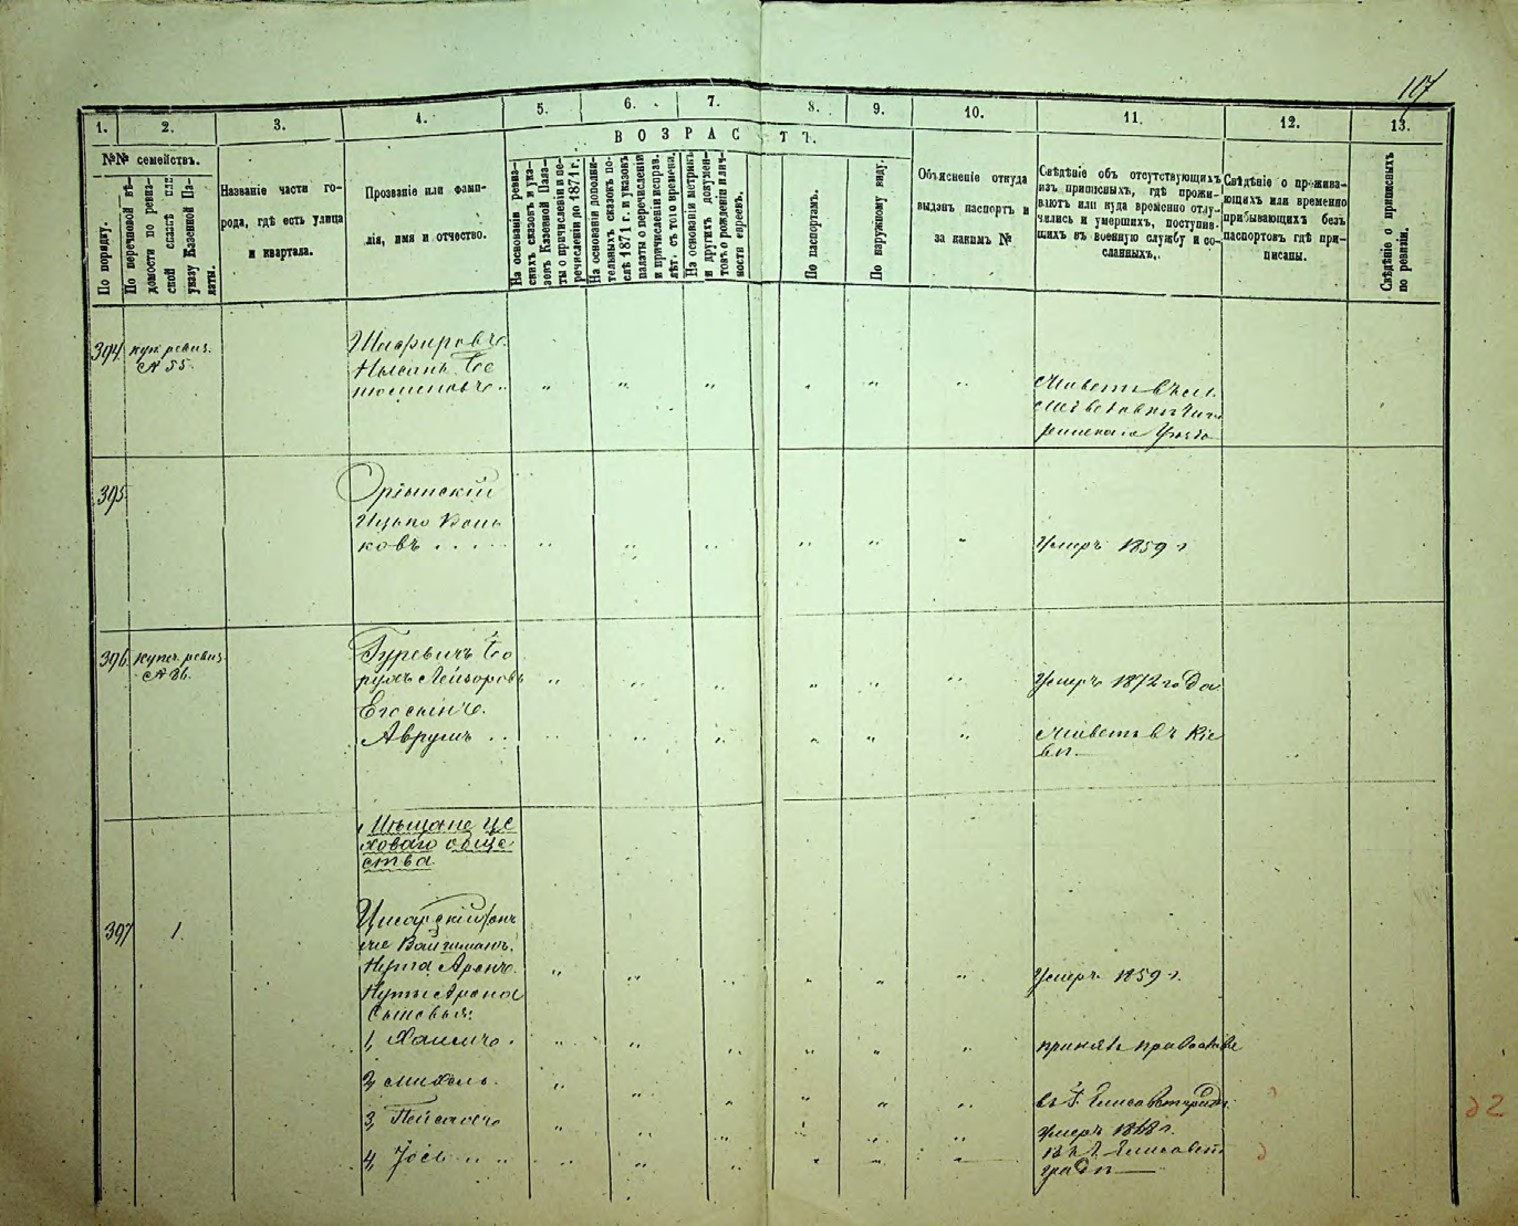 107
1. 2. 3. 4. 5. 6. 7. 8. 9. 10. 11. 12. 13.
ВОЗРАСТЪ.
№№ семействъ.
По порядку.
По перечневой вѣ-
домости по ревиз-
ской сказкѣ или
указу Казенной Па-
латы.
Названіе части го-
рода, гдѣ есть улица
и квартала.
Прозваніе или фами-
лія, имя и отчество.
На основаніи ревиз-
скихъ сказокъ и ука-
зовъ Казенной Пала-
ты о причисленіи и пе-
речисленіи до 1871 г.
На основаніи дополни-
тельныхъ сказокъ по-
слѣ 1871 г. и указовъ
палаты о перечисленіи
и причисленіи исправ.
лѣт. съ того времени.
На основаніи метрикъ
и другихъ докумен-
товъ о рожденіи и лич-
ности евреевъ.
По паспортамъ.
По наружному виду.
Объясненіе откуда
выданъ паспортъ и
за какимъ №.
Свѣдѣніе объ отсутствующихъ
изъ приписныхъ, гдѣ прожи-
ваютъ или куда временно отлу-
чились и умершихъ, поступив-
шихъ въ военную службу и со-
сланныхъ.
Свѣдѣніе о прожива-
ющихъ или временно
прибывающихъ безъ
паспортовъ гдѣ при-
писаны.
Свѣдѣніе о приписныхъ
по ревизіи.
394. куп. ревиз.
№ 55.
Шафировъ
Нысанъ
Живетъ въ
Уѣзда
395
Орлинскій
Ицько Вель
ковъ . . . . Умеръ 1859 г
396 купеч. ревиз.
№ 86.
Гуревичъ Бо
рухъ Лейзоровъ Умеръ 1872 года
Его сынъ
Аврумъ . . Живетъ въ Кіе
вѣ
Мѣщане це
ховаго обще
ства
397 1.
Цисарскій онъ
же Вайцманъ.
Нута Аронъ Умеръ 1859 г.
Нуты Арона
Сыновья:
1, Хаимъ принялъ православіе
2, Михель. въ г. Елисаветградѣ
3, Пейсахъ умеръ 1868 г.
4, Іось въ г. Елисавет
градѣ